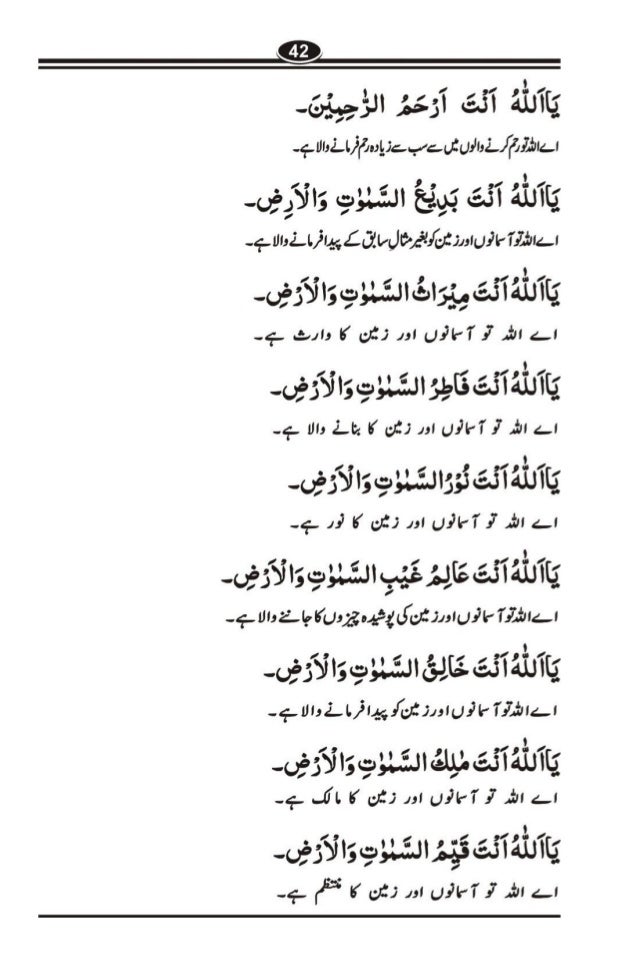 42
یَااَللّٰہُ اَنْتَ اَرْحَمُ الرّٰحِمِیْنَ۔
اے اللہ تو رحم کرنے والوں میں سے سب سے زیادہ رحم فرمانے والا ہے۔
یَااَللّٰہُ اَنْتَ بَدِیْعُ السَّمٰوٰتِ وَالْاَرِضِ۔
اے اللہ تو آسمانوں اور زمین کو بغیر مثالِ سابق کے پیدا فرمانے والا ہے۔
یَااَللّٰہُ اَنْتَ مِیْرَاثُ السَّمٰوٰتِ وَالْاَرْضِ۔
اے اللہ تو آسمانوں اور زمین کا وارث ہے۔
یَااَللّٰہُ اَنْتَ فَاطِرُ السَّمٰوٰتِ وَالْاَرْضِ۔
اے اللہ تو آسمانوں اور زمین کا بنانے والا ہے۔
یَااَللّٰہُ اَنْتَ نُوْرُ السَّمٰوٰتِ وَالْاَرْضِ۔
اے اللہ تو آسمانوں اور زمین کا نور ہے۔
یَااَللّٰہُ اَنْتَ عَالِمُ غَیْبِ السَّمٰوٰتِ وَالْاَرْضِ۔
اے اللہ تو آسمانوں اور زمین کی پوشیدہ چیزوں کا جاننے والا ہے۔
یَااَللّٰہُ اَنْتَ خَالِقُ السَّمٰوٰتِ وَالْاَرْضِ۔
اے اللہ تو آسمانوں اور زمین کو پیدا فرمانے والا ہے۔
یَااَللّٰہُ اَنْتَ مٰلِکُ السَّمٰوٰتِ وَالْاَرْضِ۔
اے اللہ تو آسمانوں اور زمین کا مالک ہے۔
یَااَللّٰہُ اَنْتَ قَیِّمُ السَّمٰوٰتِ وَالْاَرْضِ۔
اے اللہ تو آسمانوں اور زمین کا منتظم ہے۔